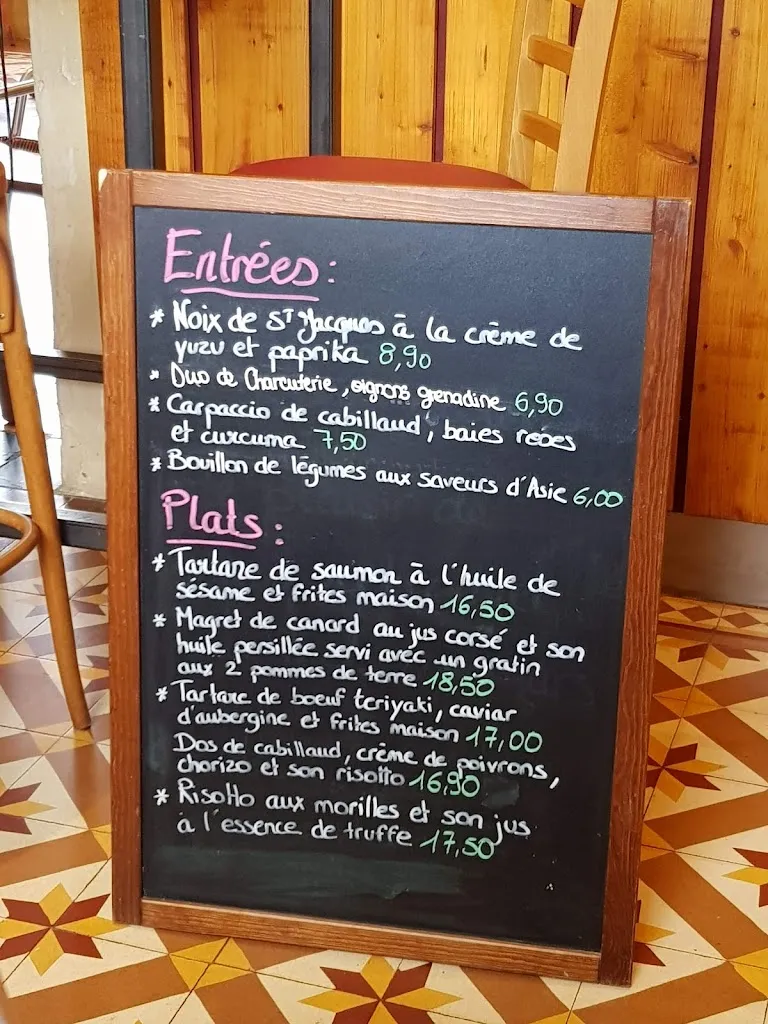 Entrées :
* Noix de St Jacques à la crème de
yuzu et paprika 8,90
* Duo de Charcuterie, oignons grenadine 6,90
* Carpaccio de cabillaud, baies roses
et curcuma 7,50
* Bouillon de légumes aux saveurs d'Asie 6,00
Plats :
* Tartare de saumon à l'huile de
sésame et frites maison 16,50
* Magret de canard au jus corsé et son
huile persillée servi avec un gratin
aux 2 pommes de terre 18,50
* Tartare de boeuf teriyaki, caviar
d'aubergine et frites maison 17,00
Dos de cabillaud, crème de poivrons,
chorizo et son risotto 16,90
* Risotto aux morilles et son jus
à l'essence de truffe 17,50